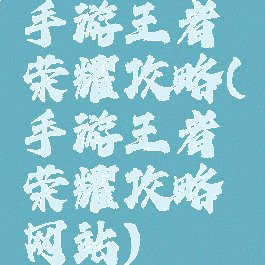 手游王者
荣耀攻略(
手游王者
荣耀攻略
网站)